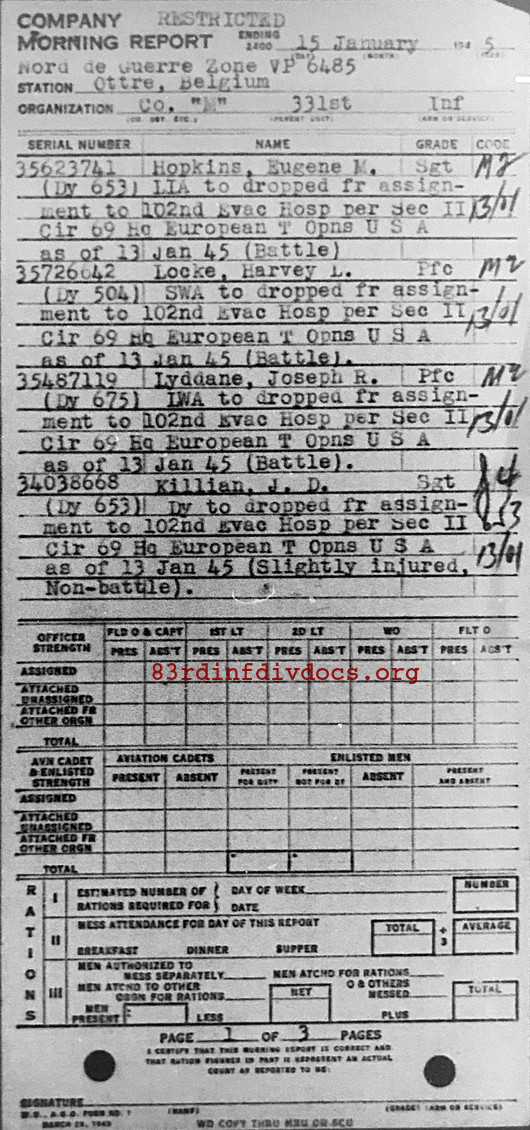 COMPANY RESTRICTED
MORNING REPORT ENDING 2400 15 January 194 5
Nord de Guerre Zone VP 6485
STATION Ottre, Belgium
ORGANIZATION Co. "M" 331st Inf
SERIAL NUMBER NAME GRADE CODE
35623741 Hopkins, Eugene M. Sgt M2
(Dy 653) LIA to dropped fr assign-
ment to 102nd Evac Hosp per Sec II 13/01
Cir 69 Hq European T Opns U S A
as of 13 Jan 45 (Battle)
35726642 Locke, Harvey L. Pfc M2
(Dy 504) SWA to dropped fr assign-
ment to 102nd Evac Hosp per Sec II, 13/01
Cir 69 Hq European T Opns U S A
as of 13 Jan 45 (Battle).
35487119 Lyddane, Joseph R. Pfc M2
(Dy 675) LWA to dropped fr assign-
ment to 102nd Evac Hosp per Sec II 13/01
Cir 69 Hq European T Opns U S A
as of 13 Jan 45 (Battle).
34038668 Killian, J. D. Sgt
(Dy 653) Dy to dropped fr assign-
ment to 102nd Evac Hosp per Sec II
Cir 69 Hq European T Opns U S A 13/01
as of 13 Jan 45 (Slightly injured,
Non-battle).
OFFICER STRENGTH FLD O & CAPT 1ST LT 2D LT WO FLT O
PRES ABS'T PRES ABS'T PRES ABS'T PRES ABS'T PRES ABS'T
ASSIGNED
83rdinfdivdocs.org
ATTACHED UNASSIGNED
ATTACHED FR OTHER ORGN
TOTAL
AVN CADET & ENLISTED STRENGTH AVIATION CADETS ENLISTED MEN
PRESENT ABSENT PRESENT FOR DUTY PRESENT NOT FOR DY ABSENT PRESENT AND ABSENT
ASSIGNED
ATTACHED UNASSIGNED
ATTACHED FR OTHER ORGN
TOTAL
RATIONS
I ESTIMATED NUMBER OF RATIONS REQUIRED FOR { DAY OF WEEK DATE NUMBER
II MESS ATTENDANCE FOR DAY OF THIS REPORT TOTAL ÷ 3 AVERAGE
BREAKFAST DINNER SUPPER
III MEN AUTHORIZED TO MESS SEPARATELY MEN ATCHD FOR RATIONS
MEN ATCHD TO OTHER ORGN FOR RATIONS NET O & OTHERS MESSED TOTAL
MEN PRESENT LESS PLUS
PAGE 1 OF 3 PAGES
I CERTIFY THAT THIS MORNING REPORT IS CORRECT AND
THAT RATION FIGURES IN PART III REPRESENT AN ACTUAL
COUNT AS REPORTED TO ME:
SIGNATURE
(NAME) (GRADE) (ARM OR SERVICE)
W.D., A.G.O. FORM NO. 1
MARCH 25, 1943 WD COPY THRU MRU OR SCU